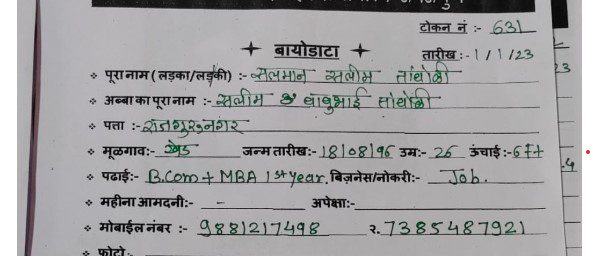 टोकन नं :- 631
बायोडाटा
तारीख :- 1 / 1 / 23
पूरा नाम (लड़का/लड़की) :- सलमान सलीम तांबोळी
अब्बा का पूरा नाम :- सलीम बाबुभाई तांबोळी
पता :- राजगुरुनगर
मूळगाव:- खेड जन्म तारीख:- 18/08/96 उम्र:- 26 ऊंचाई:- 6 ft
पढाई:- B.Com + MBA 1st year. बिज़नेस/नोकरी:- Job.
महीना आमदनी:- - अपेक्षा:-
मोबाईल नंबर :- 9881217498 २. 7385487921
फोटो